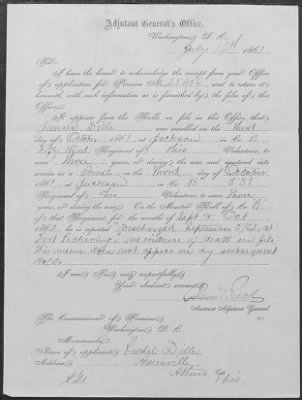 Adjutant General's Office,
Washington, D. C.
July 1863.
Sir:
I have the honor to acknowledge the receipt from your Office
of application for Pension No. and to return it
herewith, with such information as is furnished by the files of this
Office.
It appears from the Rolls on file in this Office, that
Dille was enrolled on the
day of October 1861 at Jackson in Co. B
Regiment of Ohio Volunteers, to
serve three years, or during the war, and mustered into
service as a Private on the day of October
1861 at Jackson in Co. B 53d
Regiment of Ohio Volunteers, to serve Three
years, or during the war. On the Muster Roll of Co. B
of that Regiment, for the months of Sept & Oct
1862 he is reported "Discharged September 3/62 at
Fort Pickering." no evidence of death on file
His name does not appear on any subsequent
Rolls
I am, Sir, very respectfully,
Your obedient servant,
Assistant Adjutant General.
The Commissioner of Pensions,
Washington, D. C.
Memoranda:
Name of applicant, Dille
Address,
Athens Co
Ohio